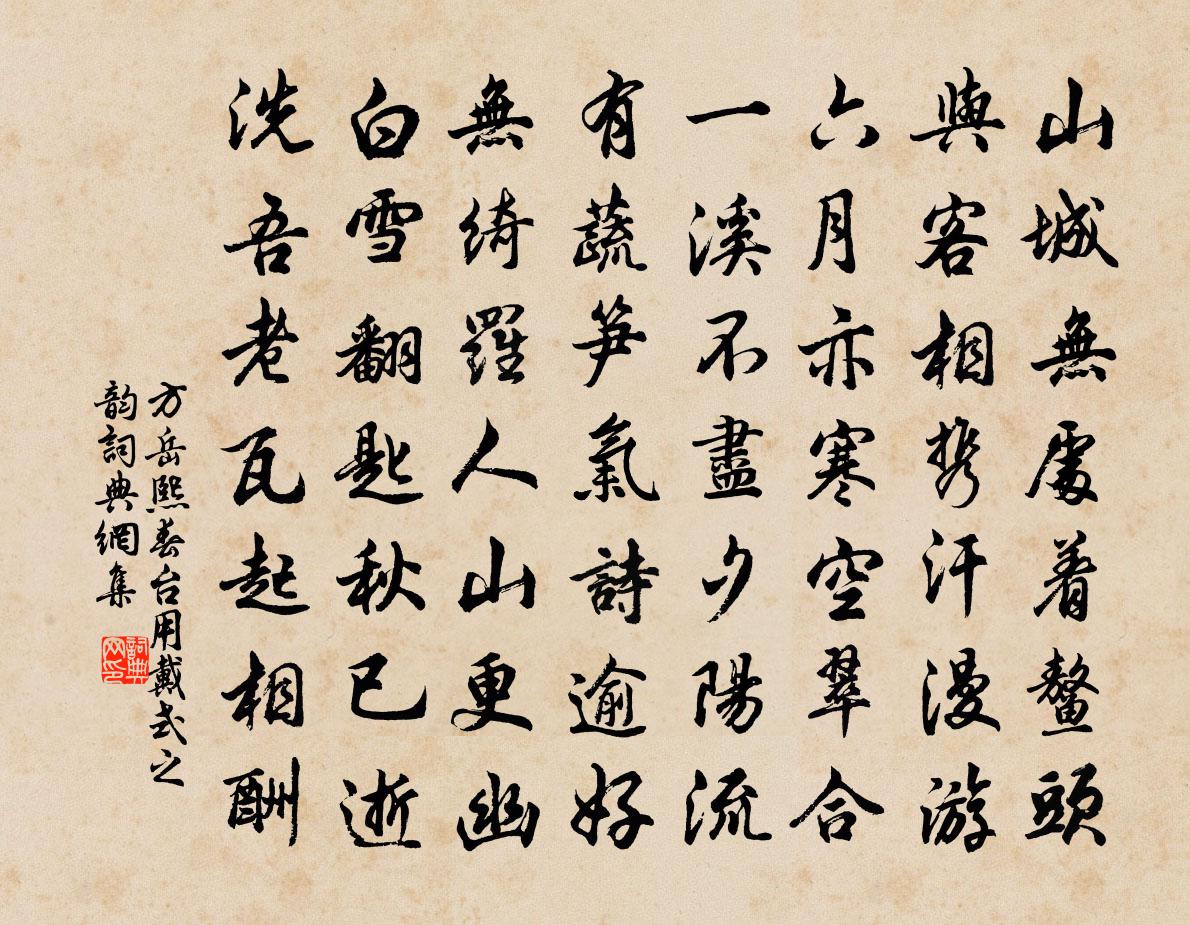 山城無處着鼇頭
與客相携汗漫游
六月亦寒空翠合
一溪不盡夕陽流
有蔬笋氣詩逾好
無綺羅人山更幽
白雪翻匙秋已逝
洗吾老瓦起相酬
方岳熙春台用戴式之
韵詞典網集
詞典网印